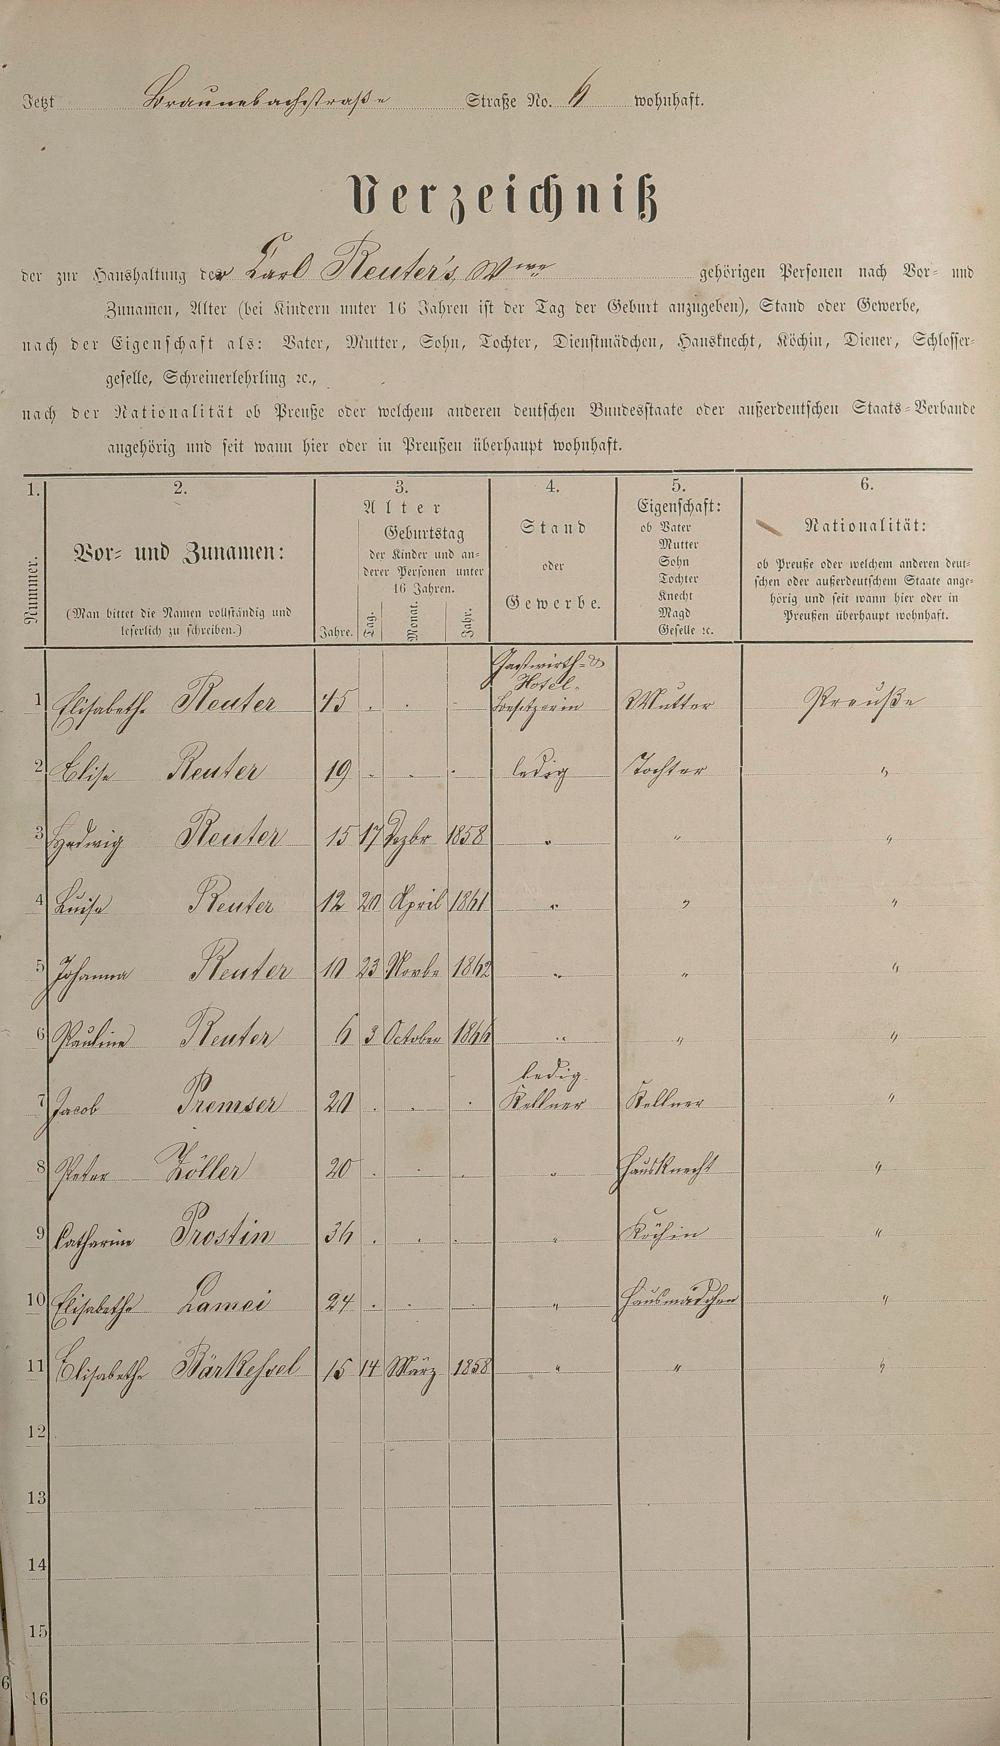 Jetzt Braunebachstraße Straße No. 6 wohnhaft.
Verzeichniß
der zur Haushaltung der Carl Reuter's Wwe gehörigen Personen nach Vor- und
Zunamen, Alter (bei Kindern unter 16 Jahren ist der Tag der Geburt anzugeben), Stand oder Gewerbe,
nach der Eigenschaft als: Vater, Mutter, Sohn, Tochter, Dienstmädchen, Hausknecht, Köchin, Diener, Schlosser-
geselle, Schreinerlehrling ꝛc.,
nach der Nationalität ob Preuße oder welchem anderen deutschen Bundesstaate oder außerdeutschen Staats-Verbande
angehörig und seit wann hier oder in Preußen überhaupt wohnhaft.
1. 2. 3. 4. 5. 6.
Nummer.
Vor- und Zunamen:
(Man bittet die Namen vollständig und
leserlich zu schreiben.)
Alter
Geburtstag
der Kinder und an-
derer Personen unter
16 Jahren.
Jahre. Tag. Monat. Jahr.
Stand
oder
Gewerbe.
Eigenschaft:
ob Vater
Mutter
Sohn
Tochter
Knecht
Magd
Geselle ꝛc.
Nationalität:
ob Preuße oder welchem anderen deut-
schen oder außerdeutschem Staate ange-
hörig und seit wann hier oder in
Preußen überhaupt wohnhaft.
Gastwirth- &
Hotel-
1 Elisabeth Reuter 45 . . . Besitzerin Mutter Preuße
2 Elise Reuter 19 . . . ledig Tochter "
3 Hedwig Reuter 15 17 Dezbr 1858 " " "
4 Luise Reuter 12 20 April 1861 " " "
5 Johanna Reuter 10 23 Novbr 1862 " " "
6 Pauline Reuter 6 3 October 1866 " " "
ledig
7 Jacob Premser 20 . . . Kellner Kellner "
8 Peter Zöller 20 . . . " Hausknecht "
9 Catharine Prostin 36 . . . " Köchin "
10 Elisabethe Lamei 24 . . " Hausmädchen "
11 Elisabethe Bärkessel 15 14 März 1858 " " "
12
13
14
15
16
6